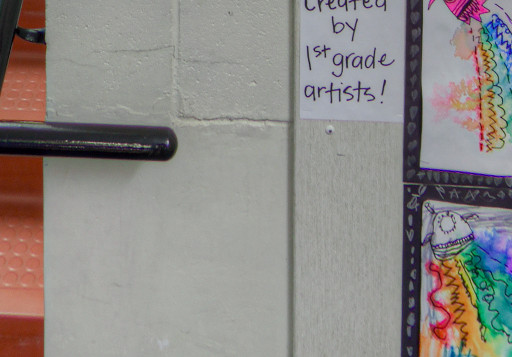 created
by
1st grade
artists!